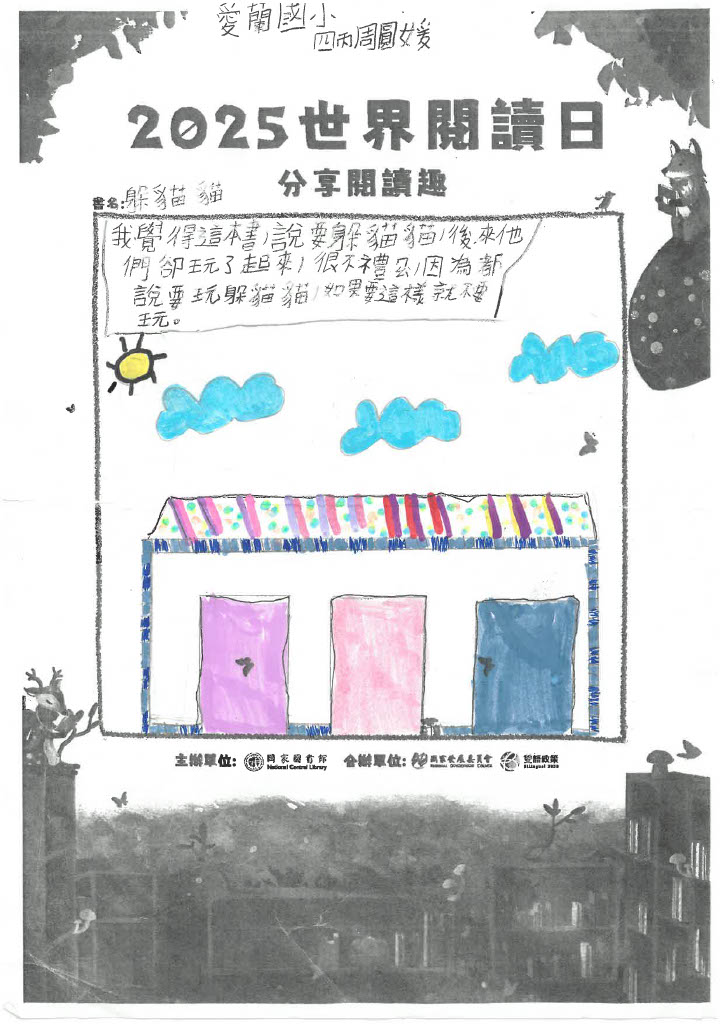 愛蘭國小
四丙周圓媛
2025世界閱讀日
分享閱讀趣
書名:躲貓貓
我覺得這本書,說要躲貓貓,後來他
們卻玩了起來,很不禮公,因為都
說要玩躲貓貓,如果要這樣就不要
玩。
主辦單位: 國家圖書館 National Central Library 合辦單位: 國家發展委員會 NATIONAL DEVELOPMENT COUNCIL 雙語政策 BILINGUAL 2030